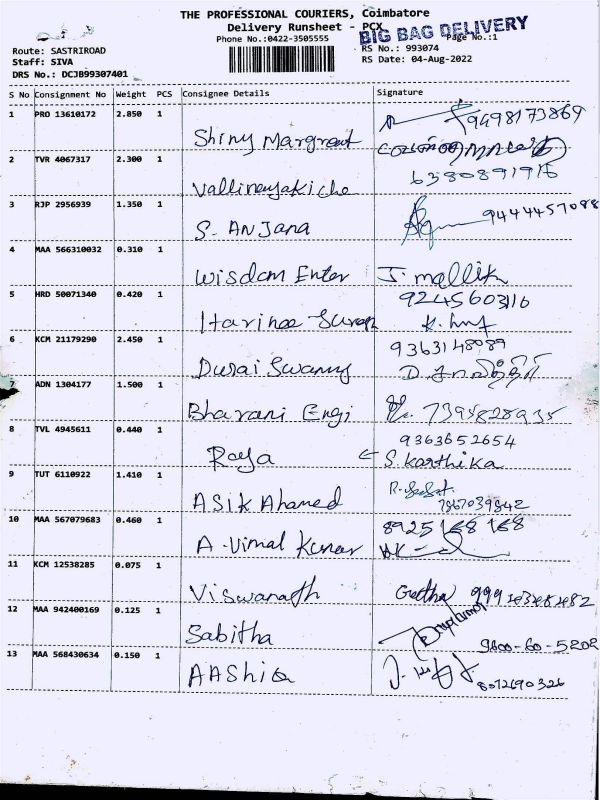 THE PROFESSIONAL COURIERS, Coimbatore
Delivery Runsheet - PCX
BIG BAG DELIVERY
Phone No.:0422-3505555
Page No.:1
Route: SASTRIROAD
RS No.: 993074
Staff: SIVA
RS Date: 04-Aug-2022
DRS No.: DCJB99307401
S No Consignment No Weight PCS Consignee Details Signature
1 PRO 13610172 2.850 1 Shiny Margreat 9498173869
2 TVR 4067317 2.300 1 Vallinayaki 6380891916
3 RJP 2956939 1.350 1 S. ANJana 9444457088
4 MAA 566310032 0.310 1 Wisdom Enter J. mallik
9245603116
5 HRD 50071340 0.420 1 Harinee
9363148089
6 KCM 21179290 2.450 1 Durai Swamy
7 ADN 1304177 1.500 1 Bharani Engi 7395828935
9363652654
8 TVL 4945611 0.440 1 Raja S. Karthika
9 TUT 6110922 1.410 1 ASIK Ahamed 7867039842
10 MAA 567079683 0.460 1 A. Vimal Kumar 8925168168
11 KCM 12538285 0.075 1 Viswanath Geetha
12 MAA 942400169 0.125 1 Sabitha 9600-60-5202
13 MAA 568430634 0.150 1 AAShiq 8072690326